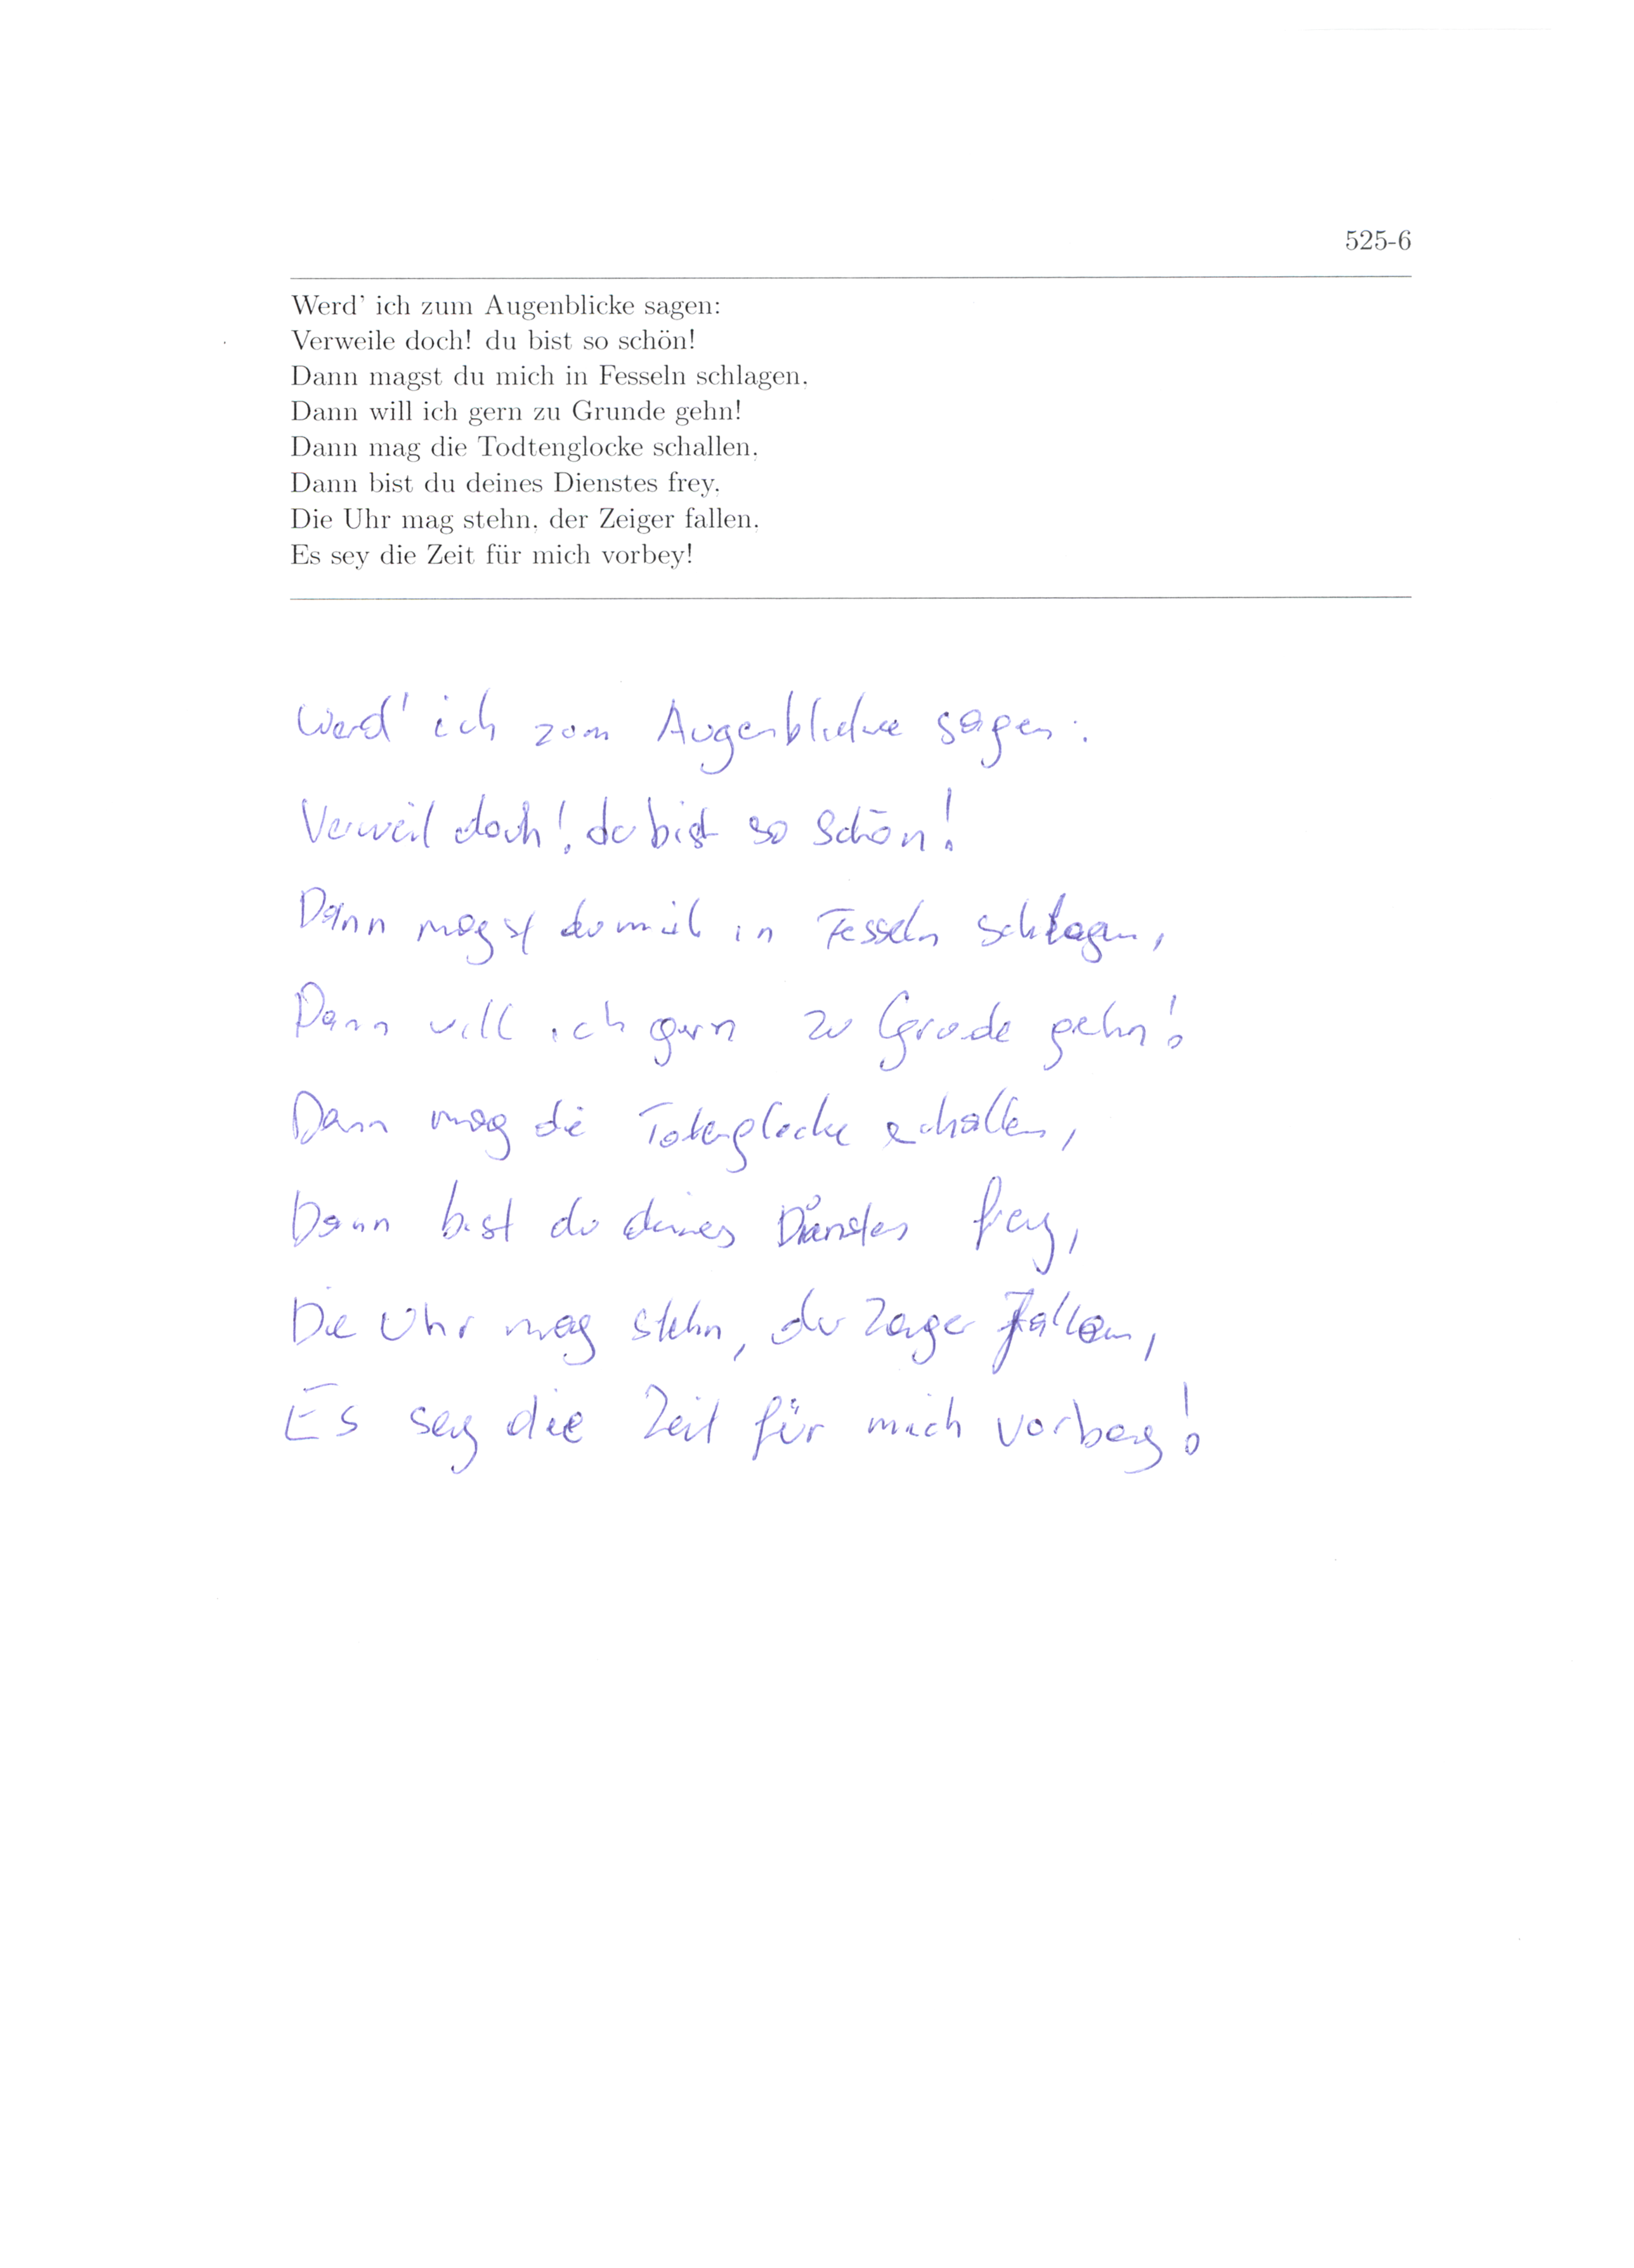 525-6
Werd' ich zum Augenblicke sagen:
Verweile doch! du bist so schön!
Dann magst du mich in Fesseln schlagen,
Dann will ich gern zu Grunde gehn!
Dann mag die Todtenglocke schallen,
Dann bist du deines Dienstes frey,
Die Uhr mag stehn, der Zeiger fallen,
Es sey die Zeit für mich vorbey!
Werd' ich zum Augenblicke sagen:
Verweil doch! du bist so schön!
Dann magst du mich in Fesseln schlagen,
Dann will ich gern zu Grude gehn!
Dann mag die Totenglocke schallen,
Dann bist du deines Dienstes frey,
Die Uhr mag stehn, der Zeiger fallen,
Es sey die Zeit für mich vorbey!